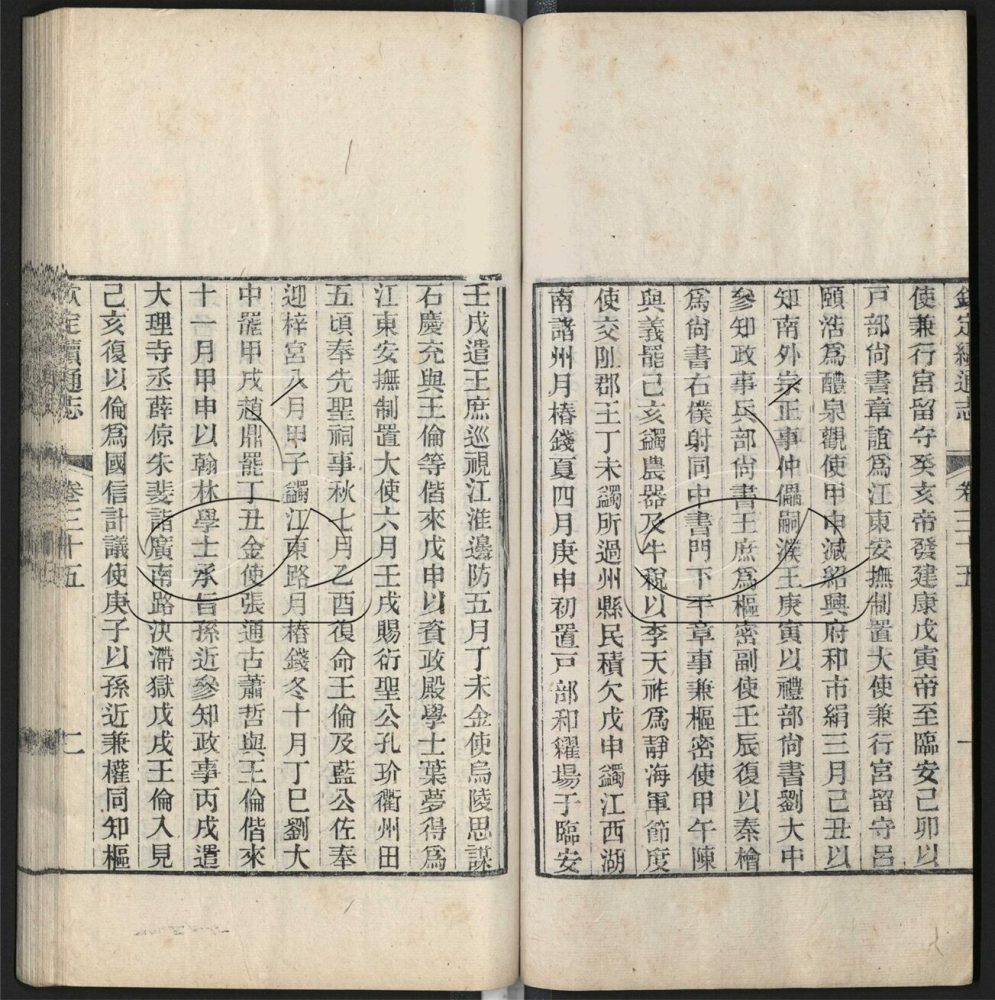 欽定續通志 卷三十五 一
使兼行宮留守癸亥帝發建康戊寅帝至臨安己卯以
戸部尚書章誼爲江東安撫制置大使兼行宮留守呂
頤浩爲醴泉觀使甲申減紹興府和市絹三月己丑以
知南外宗正事仲儡嗣濮王庚寅以禮部尚書劉大中
參知政事兵部尚書王庶爲樞密副使壬辰復以秦檜
爲尚書右僕射同中書門下平章事兼樞密使甲午陳
與義罷己亥蠲農器及牛稅以李天祚爲靜海軍節度
使交阯郡王丁未蠲所過州縣民積欠戊申蠲江西湖
南諸州月樁錢夏四月庚申初置戸部和糴場于臨安
壬戌遣王庶巡視江淮邊防五月丁未金使烏陵思謀
石慶充與王倫等偕來戊申以資政殿學士葉夢得爲
江東安撫制置大使六月壬戌賜衍聖公孔玠衢州田
五頃奉先聖祠事秋七月乙酉復命王倫及藍公佐奉
迎梓宮八月甲子蠲江東路月樁錢冬十月丁巳劉大
中罷甲戌趙鼎罷丁丑金使張通古蕭哲與王倫偕來
十一月甲申以翰林學士承旨孫近參知政事丙戌遣
大理寺丞薛倞朱斐詣廣南路決滯獄戊戌王倫入見
己亥復以倫爲國信計議使庚子以孫近兼權同知樞
欽定續通志 卷三十五 二